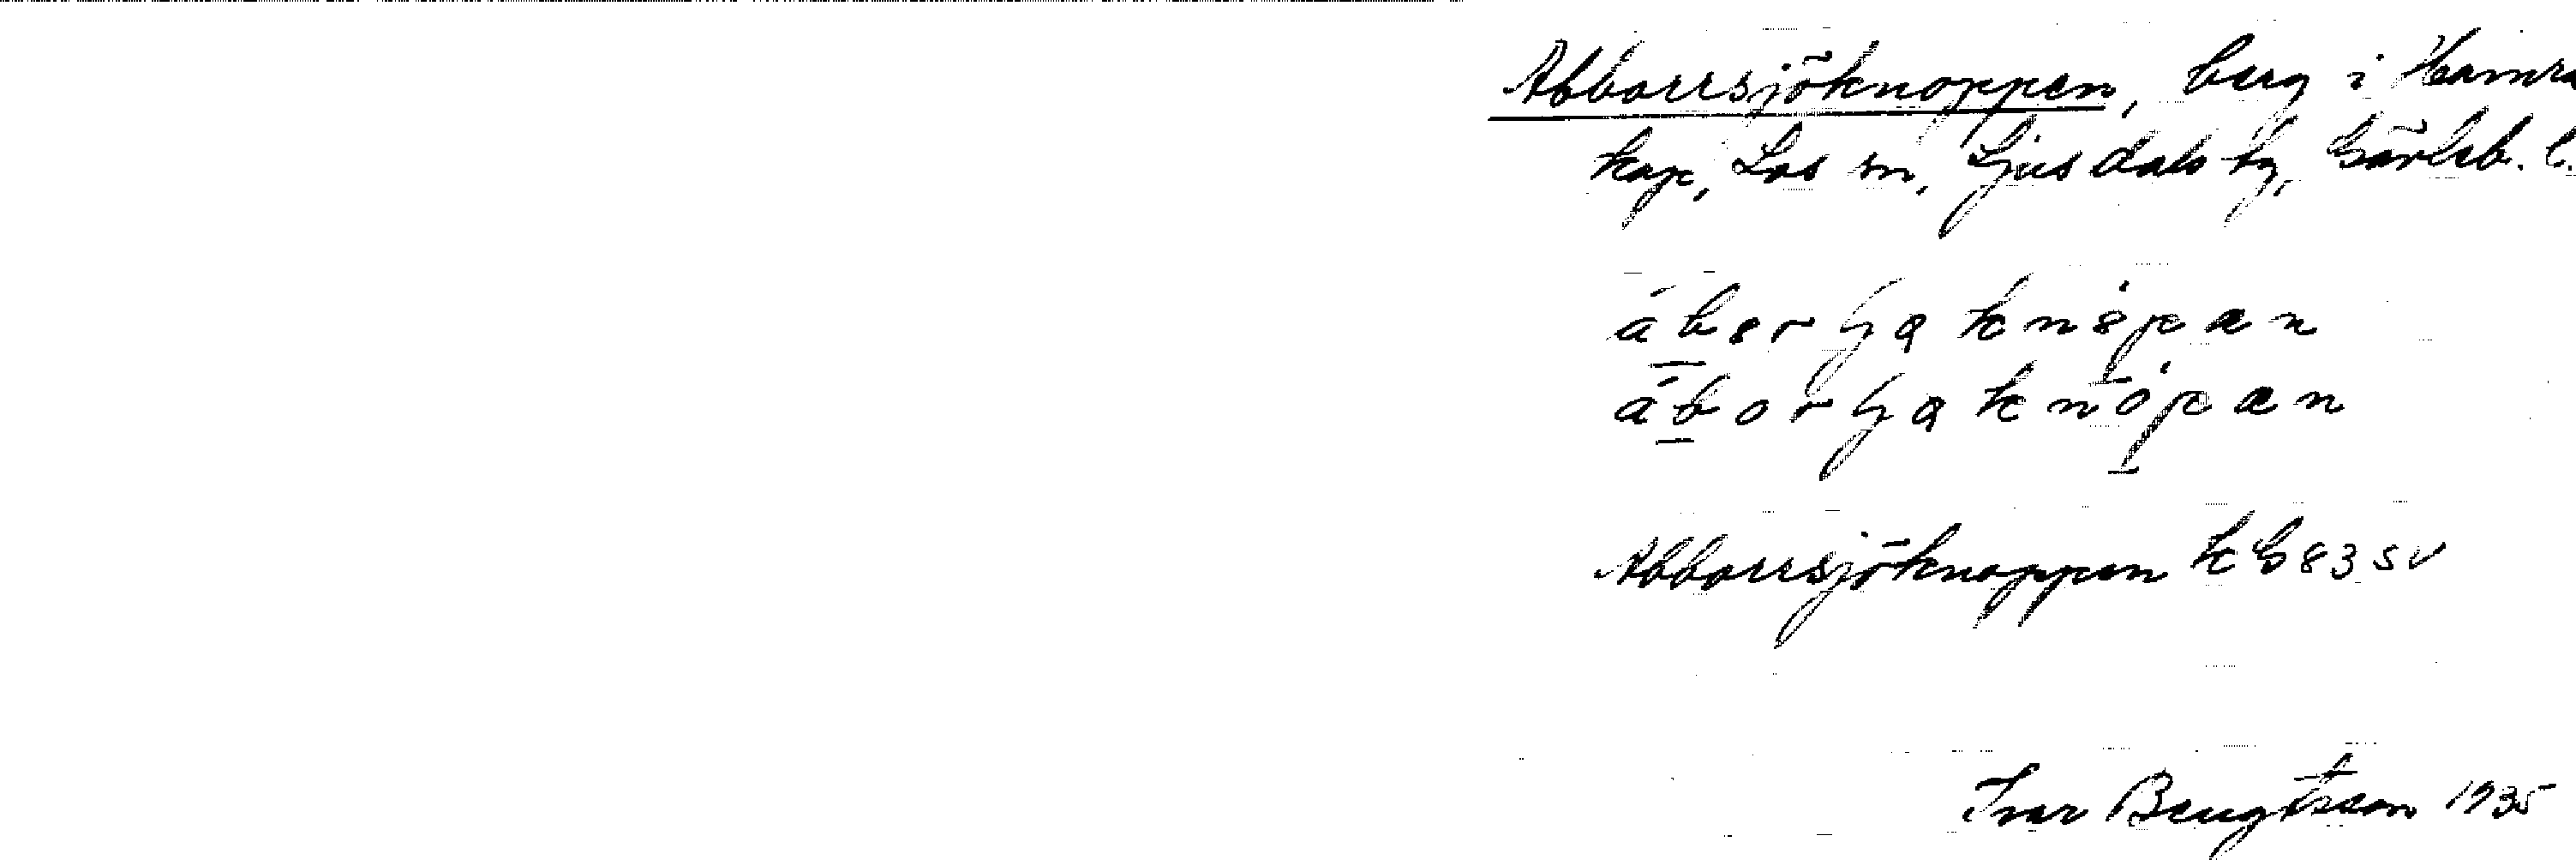 Abborrsjöknoppen, berg i Hamra
kap, Los sn, Ljusdals tg, Gävleb. l.
Abborrsjöknoppen k G 83 sv
Ivar Bengtsson 1935